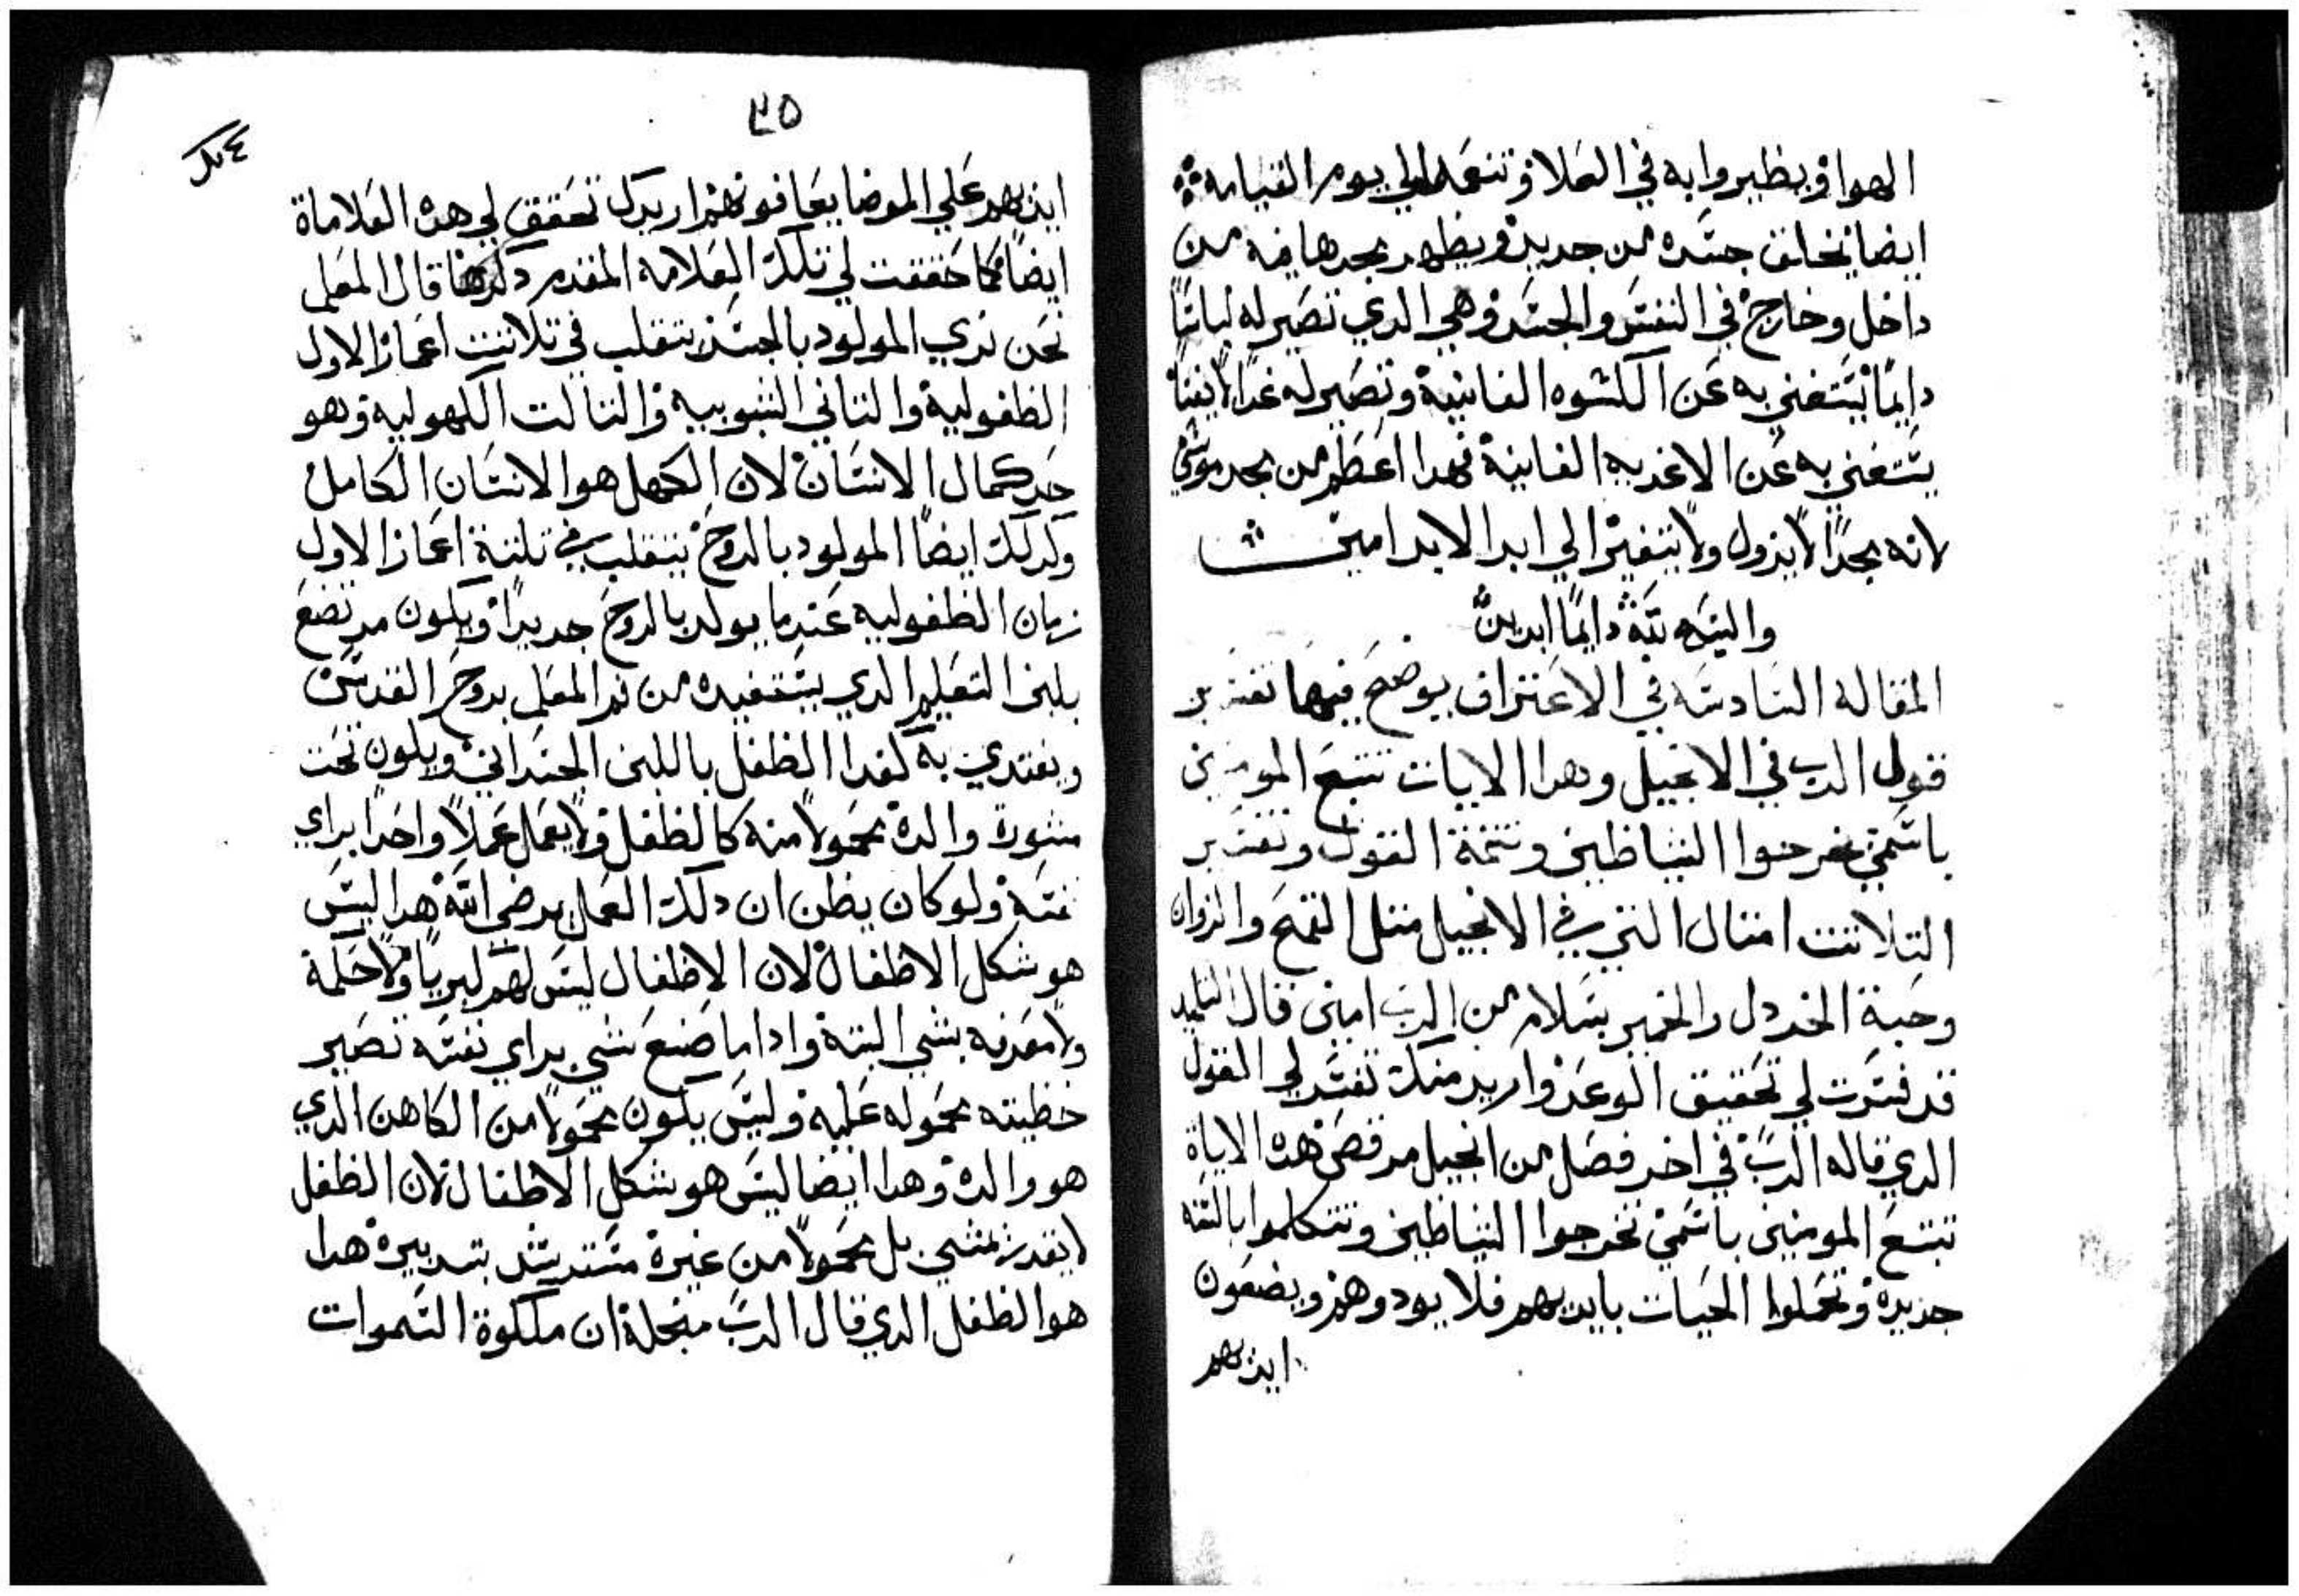 الهوا ويطيروا به في العلا وتنعمه الي يوم القيامه
ايضا تخلق جسده من جديد ويظهر مجدها فيه من
داخل وخارج في النفس والجسد وهي الدي تصير له لباسًا
دايمًا يستغني به عن الكسوه الفانية وتصير له غدا لا يفنا
يستغني به عن الاغديه الفانية فهدا اعظم من مجد موسي
لانه مجدًا لا يزول ولا يتغير الي ابد الابد امين
دايمًا ابديًا
المقاله السادسه في الاعتراف يوضح فيها تفسير
قول الرب في الانجيل وهدا الايات تتبع المومنين
باسمي يخرجوا الشياطين وتتمة القول وتفسير
التلاتت امتال التي في الانجيل متل القمح والزوان
وحبة الخردل والخمير بسلام من الرب امين قال التلميد
قد فسرت لي تحقيق الوعد واريد منك تفسر لي القول
الدي قاله الرب في اخر فصل من انجيل مرقص هده الاياة
تتبع المومنين باسمي تخرجوا الشياطين وتتكلموا بالسنه
جديدة وتحملوا الحيات بايديهم فلا يودوهم ويضعون
ايديهم
٤٥
ايديهم علي المرضا يعافونهم اريدك تحقق لي هده العلاماة
ايضًا كما حققت لي تلك العلامه المقدم دكرها قال المعلم
نحن نري المولود بالجسد يتقلب في تلاتت اعمار الاول
الطفوليه والتاني الشبوبيه والتالت الكهوليه وهو
حد كمال الانسان لان الكهل هو الانسان الكامل
وكدلك ايضًا المولود بالروح يتقلب في تلتة اعمار الاول
زمان الطفوليه عندما يولد بالروح جديدًا ويكون مرتضع
بلبن التعليم الدي يستفيده من فم المعلم بروح القدس
ويغتدي به كغدا الطفل باللبن الجسداني ويكون تحت
مشورة والدة محمولا منه كالطفل ولا يعمل عملاً واحدا براي
نفسه ولو كان يظن ان دلك العمل يرضي الله هدا ليس
هو شكل الاطفال لان الاطفال ليس لهم كبريا ولا حكمة
ولا معرفه بشي البتة وادا ما صنع شي براي نفسه تصير
خطيته محموله عليه وليس يكون محمولا من الكاهن الدي
هو والدة وهدا ايضا ليس هو شكل الاطفال لان الطفل
لا يقدر يمشي بل محمولا من غيرة بتدبيرة هدا
هو الطفل الدي قال الرب ان ملكوة السموات